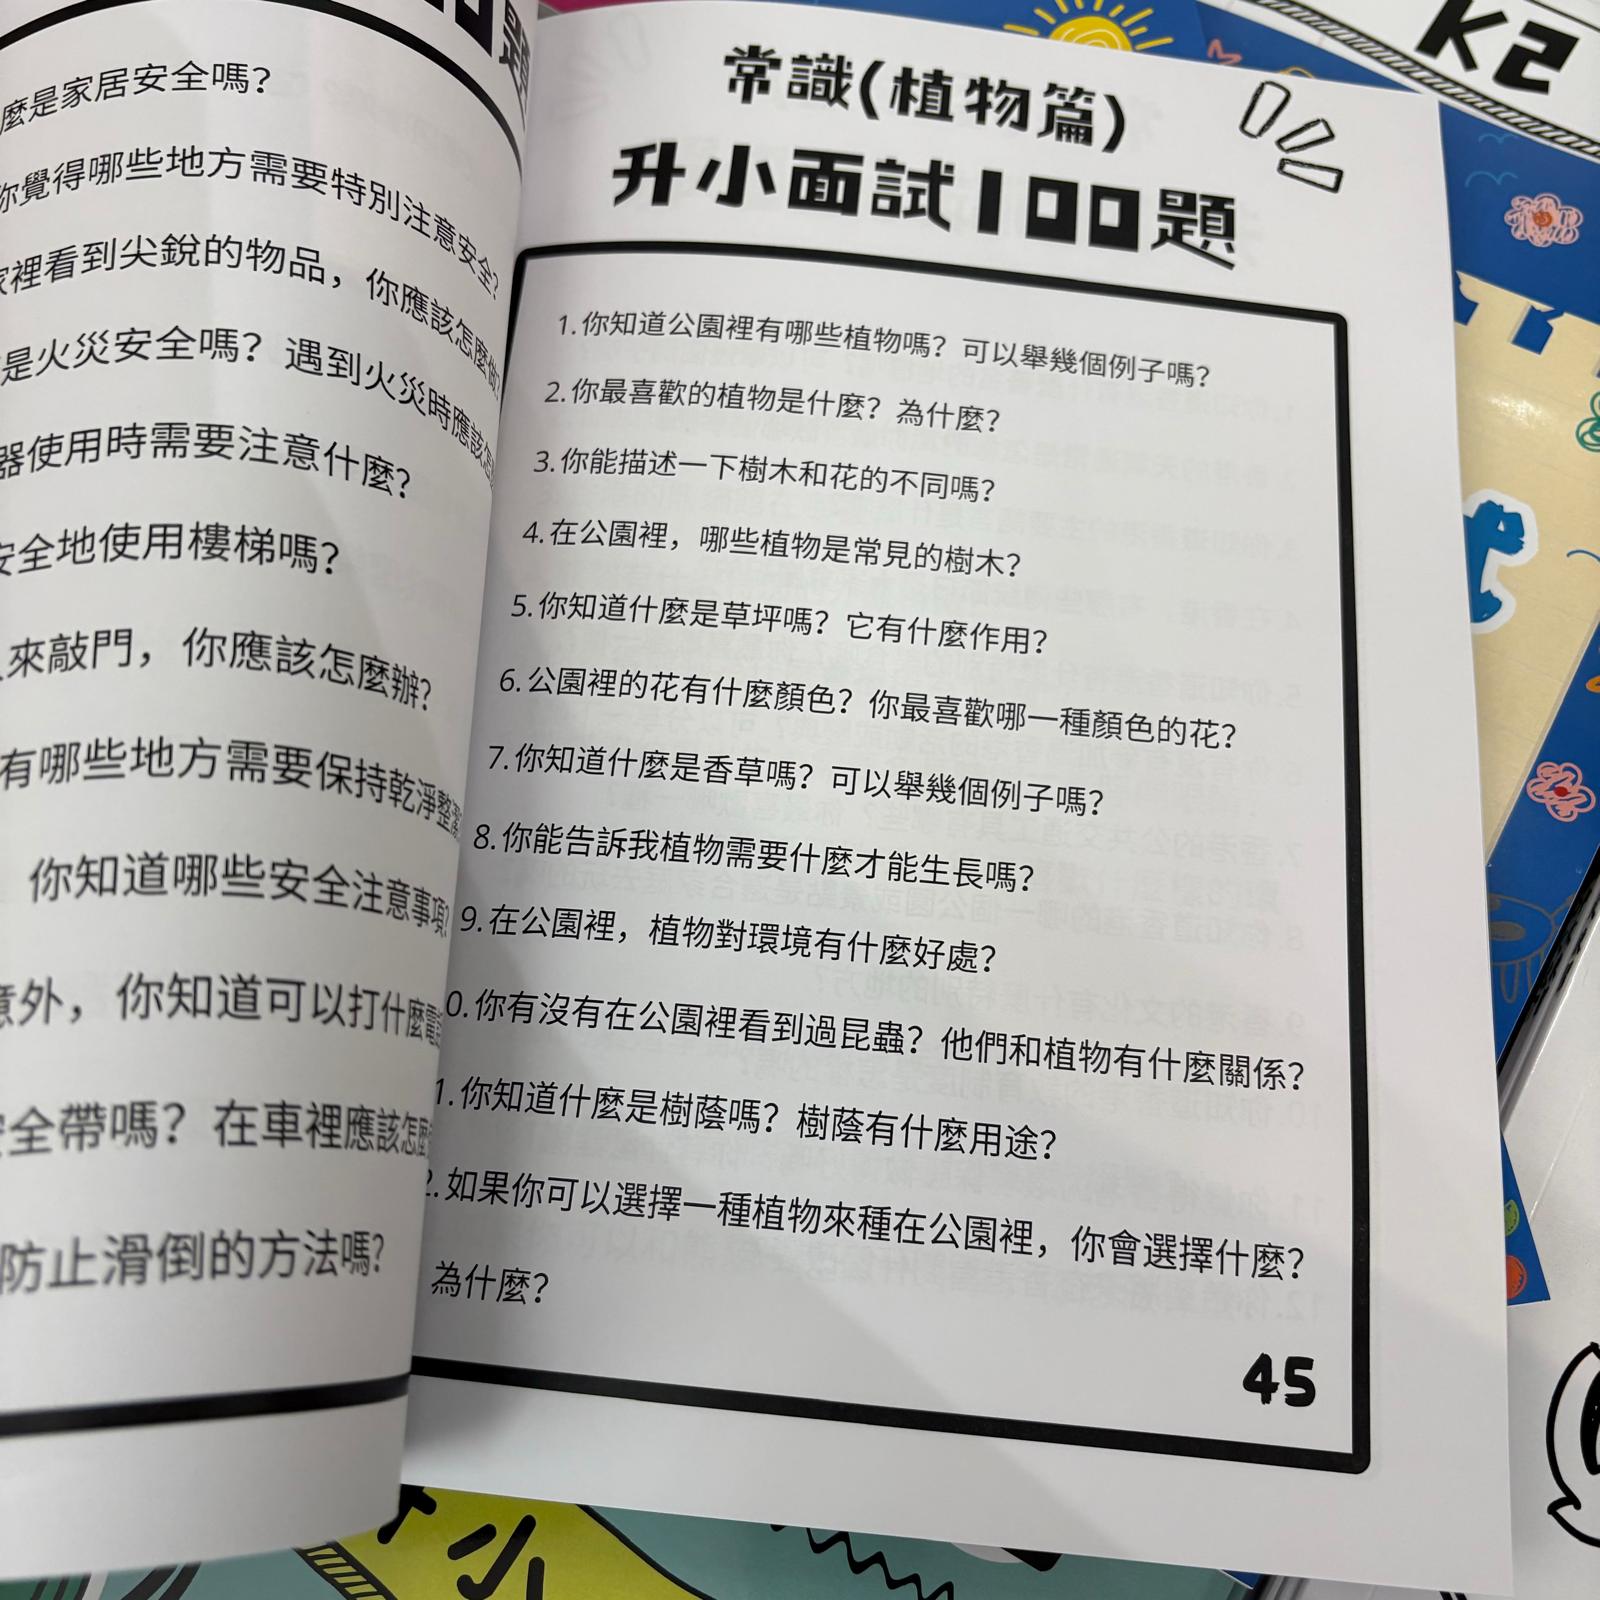 麼是家居安全嗎？
你覺得哪些地方需要特別注意安全？
家裡看到尖銳的物品，你應該怎麼做？
是火災安全嗎？遇到火災時應該怎
器使用時需要注意什麼？
安全地使用樓梯嗎？
來敲門，你應該怎麼辦？
有哪些地方需要保持乾淨整潔
你知道哪些安全注意事項？
意外，你知道可以打什麼電話
安全帶嗎？在車裡應該怎麼
防止滑倒的方法嗎？
常識(植物篇)
升小面試100題
1.你知道公園裡有哪些植物嗎？可以舉幾個例子嗎？
2.你最喜歡的植物是什麼？為什麼？
3.你能描述一下樹木和花的不同嗎？
4.在公園裡，哪些植物是常見的樹木？
5.你知道什麼是草坪嗎？它有什麼作用？
6.公園裡的花有什麼顏色？你最喜歡哪一種顏色的花？
7.你知道什麼是香草嗎？可以舉幾個例子嗎？
8.你能告訴我植物需要什麼才能生長嗎？
9.在公園裡，植物對環境有什麼好處？
0.你有沒有在公園裡看到過昆蟲？他們和植物有什麼關係？
1.你知道什麼是樹蔭嗎？樹蔭有什麼用途？
2.如果你可以選擇一種植物來種在公園裡，你會選擇什麼？
為什麼？
45
K2
小